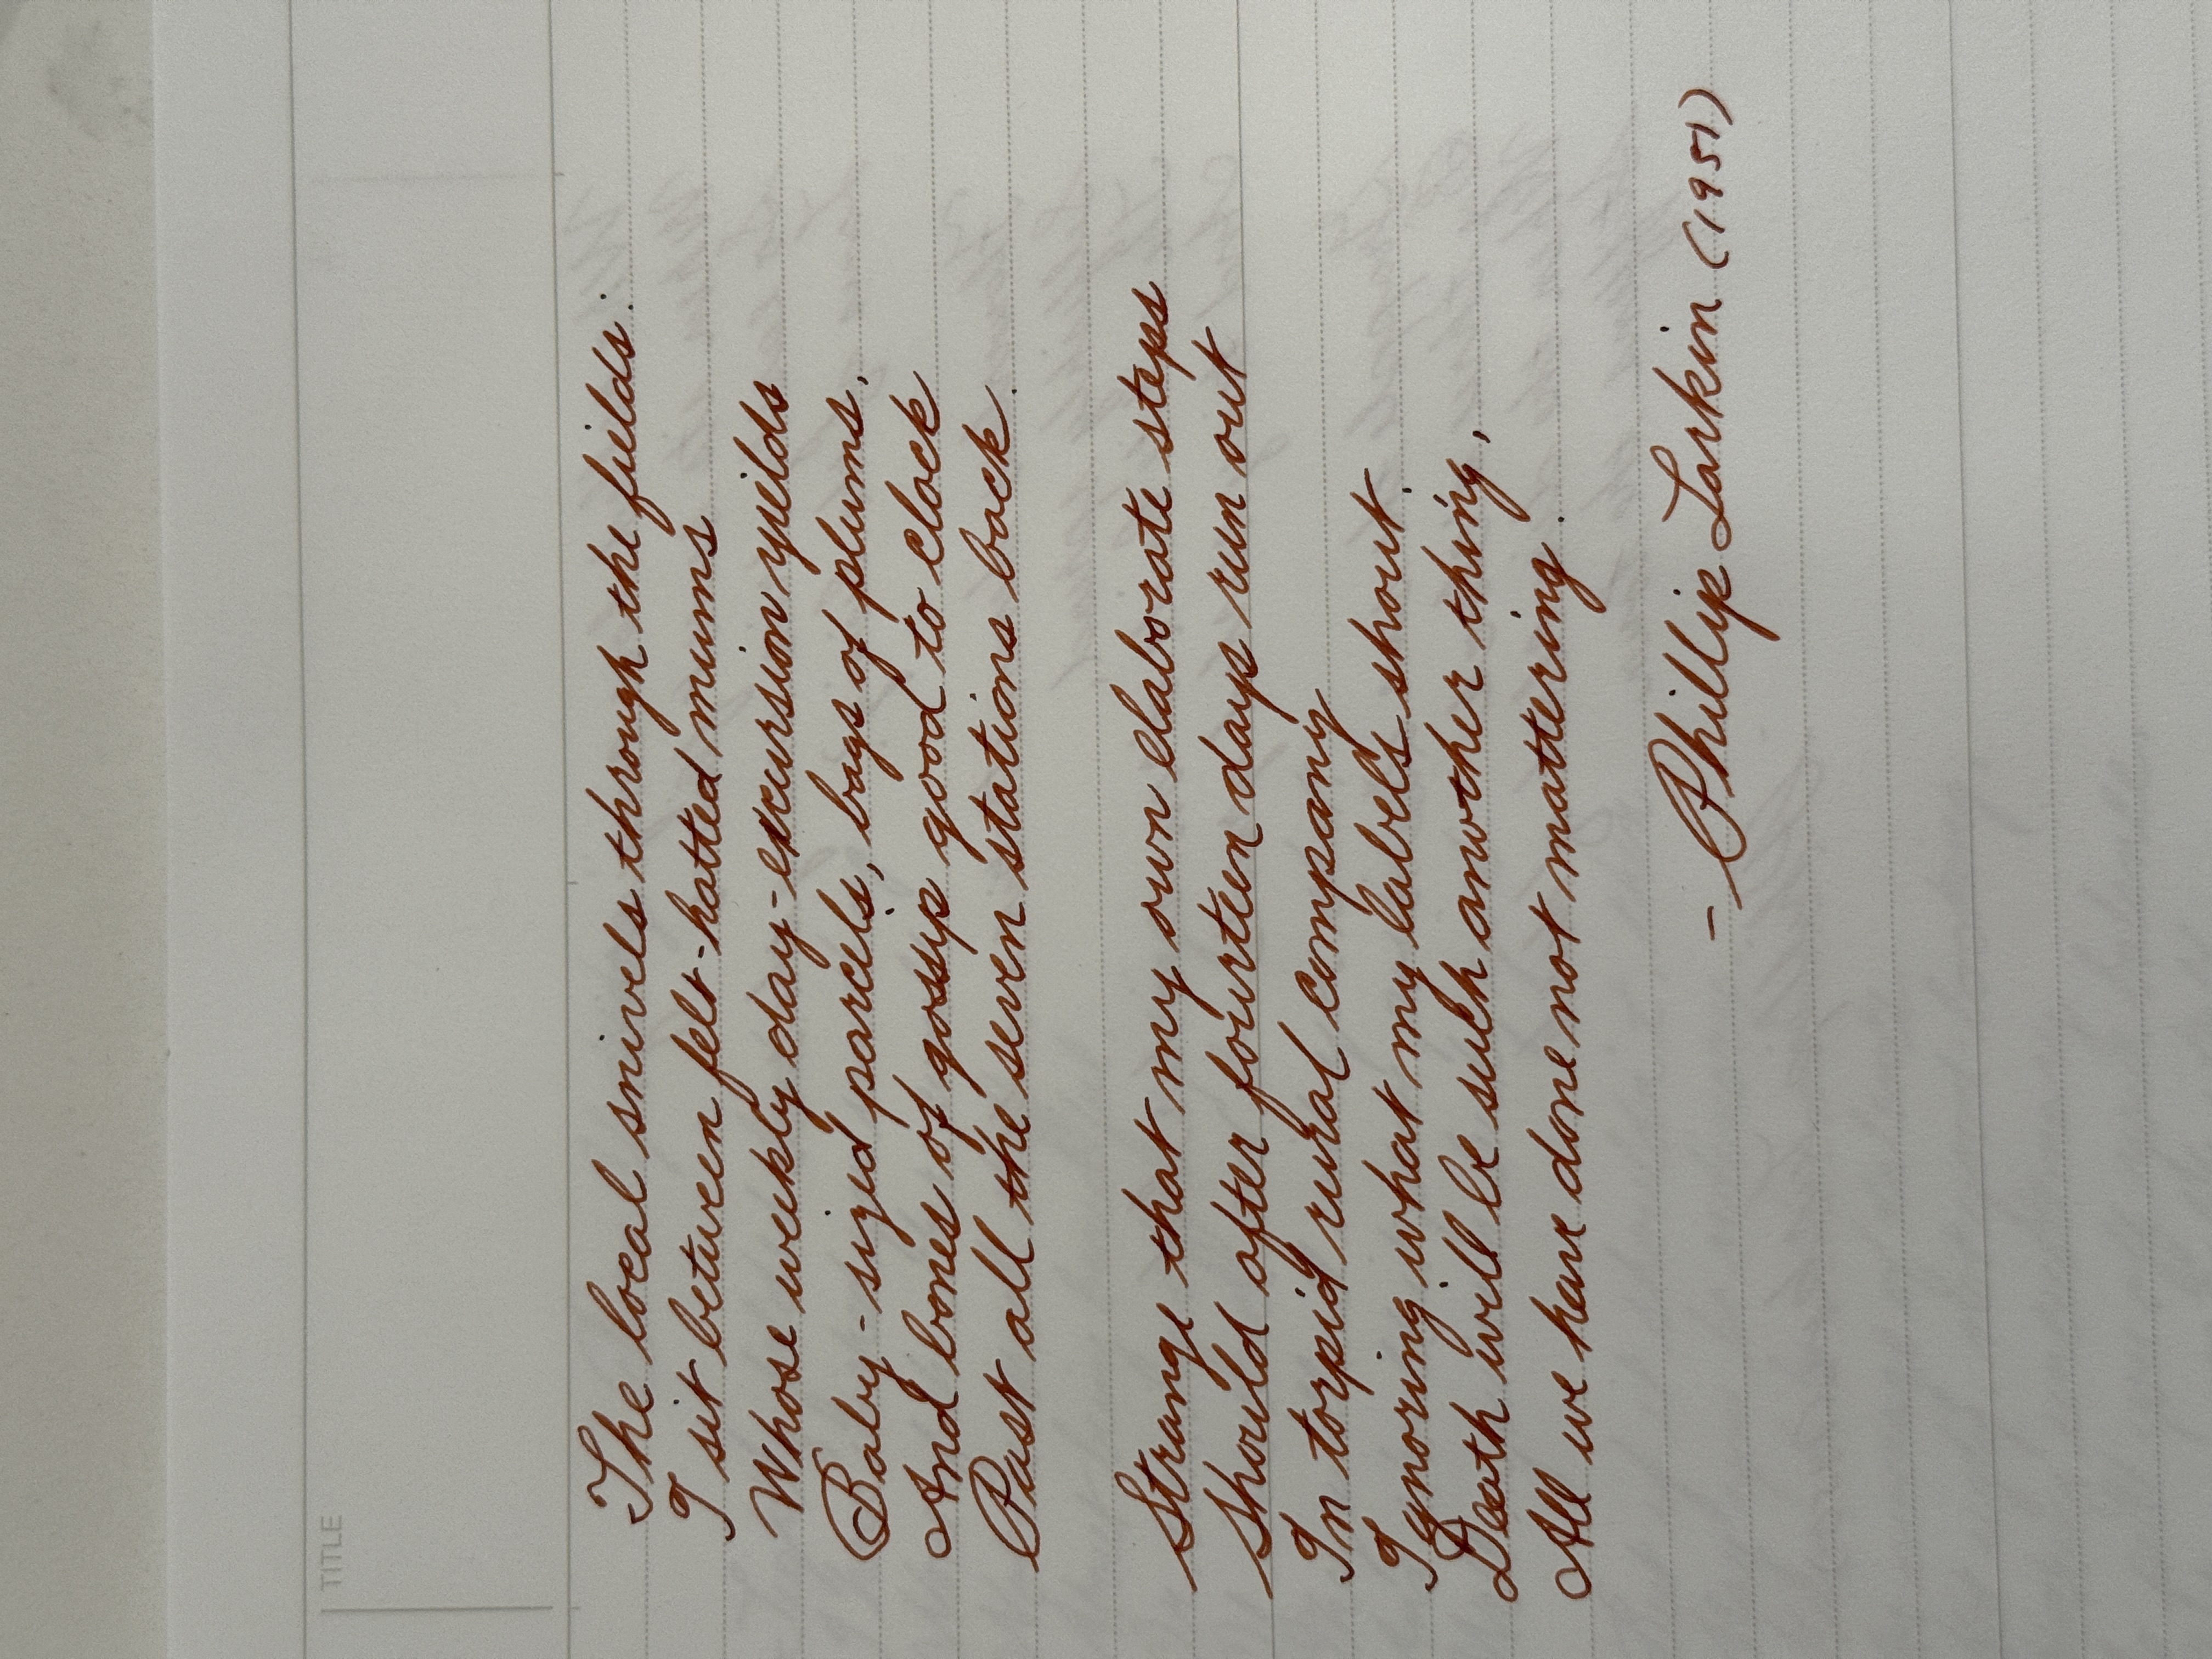 TITLE
The local snivels through the fields:
I sit between felt-hatted mums
Whose weekly day-excursion yields
Baby-sized parcels, bags of plums,
And bones of gossip good to clack
Past all the seven stations back.
Strange that my own elaborate steps
Should after fourteen days run out
In torpid rural company
Ignoring what my labels shout.
Death will be such another thing,
All we have done not mattering.
- Phillip Larkin (1951)